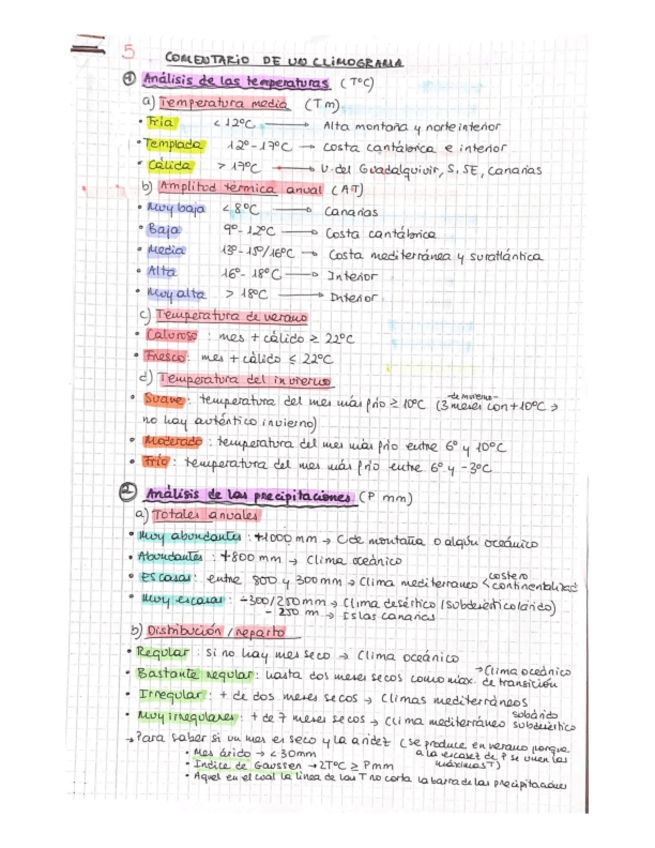 5 COMENTARIO DE UN CLIMOGRAMA
① Análisis de las temperaturas (TºC)
a) Temperatura media (Tm)
• Fría < 12ºC → Alta montaña y norte interior
• Templada 12º-17ºC → Costa cantábrica e interior
• Cálida > 17ºC → V. del Guadalquivir, S, SE, Canarias
b) Amplitud térmica anual (AT)
• Muy baja < 8ºC → Canarias
• Baja 9º-12ºC → Costa cantábrica
• Media 13º-15º/16ºC → Costa mediterránea y suratlántica
• Alta 16º-18ºC → Interior
• Muy alta > 18ºC → Interior
c) Temperatura de verano
• Caluroso : mes + cálido ≥ 22ºC
• Fresco : mes + cálido ≤ 22ºC
d) Temperatura del invierno
• Suave : temperatura del mes más frío ≥ 10ºC (3 meses con +10ºC →
no hay auténtico invierno)
• Moderado : temperatura del mes más frío entre 6º y 10ºC
• Frío : temperatura del mes más frío entre 6º y -3ºC
② Análisis de las precipitaciones (P mm)
a) Totales anuales
• Muy abundantes : +1000 mm → C. de montaña o algún oceánico
• Abundantes : +800 mm → Clima oceánico
• Escasas : entre 800 y 300 mm → Clima mediterraneo < costero
continentalizad
• Muy escasas : -300/250 mm → Clima desértico (subdesértico/árido)
- 250 m → Islas canarias
b) Distribución / reparto
• Regular : si no hay mes seco → Clima oceánico
• Bastante regular : hasta dos meses secos como máx. → Clima oceánico
de transición
• Irregular : + de dos meses secos → Climas mediterráneos
• Muy irregulares : + de 7 meses secos → Clima mediterráneo subárido
subdesértico
→ Para saber si un mes es seco y la aridez (se produce en verano porque
a la escasez de P se unen las
máximas T)
• Mes árido → < 30mm
• Indice de Gaussen → 2TºC ≥ P mm
• Aquel en el cual la linea de las T no corta la barra de las precipitaciones